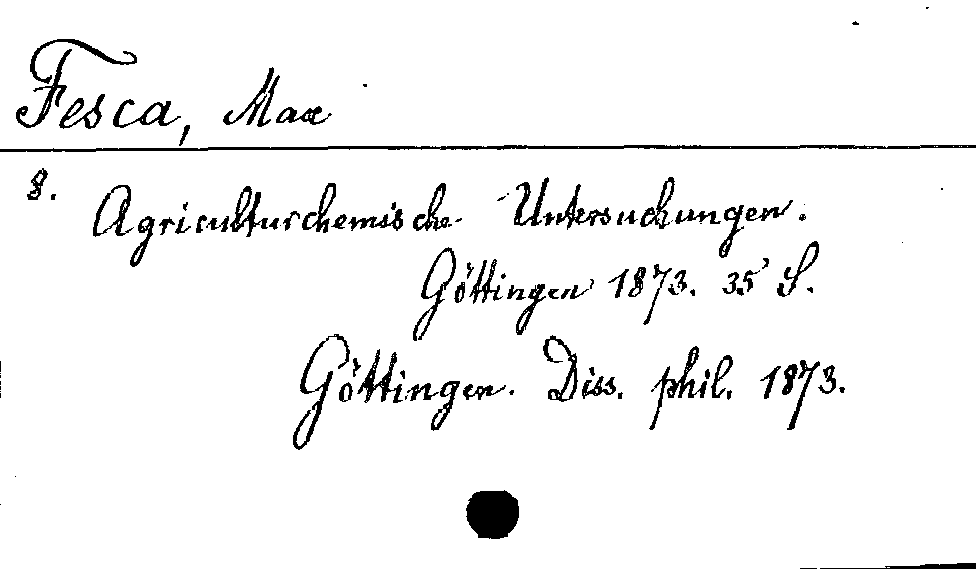 Fesca, Max
8.
Agriculturchemische Untersuchungen.
Göttingen 1873. 35 S.
Göttingen. Diss. phil. 1873.